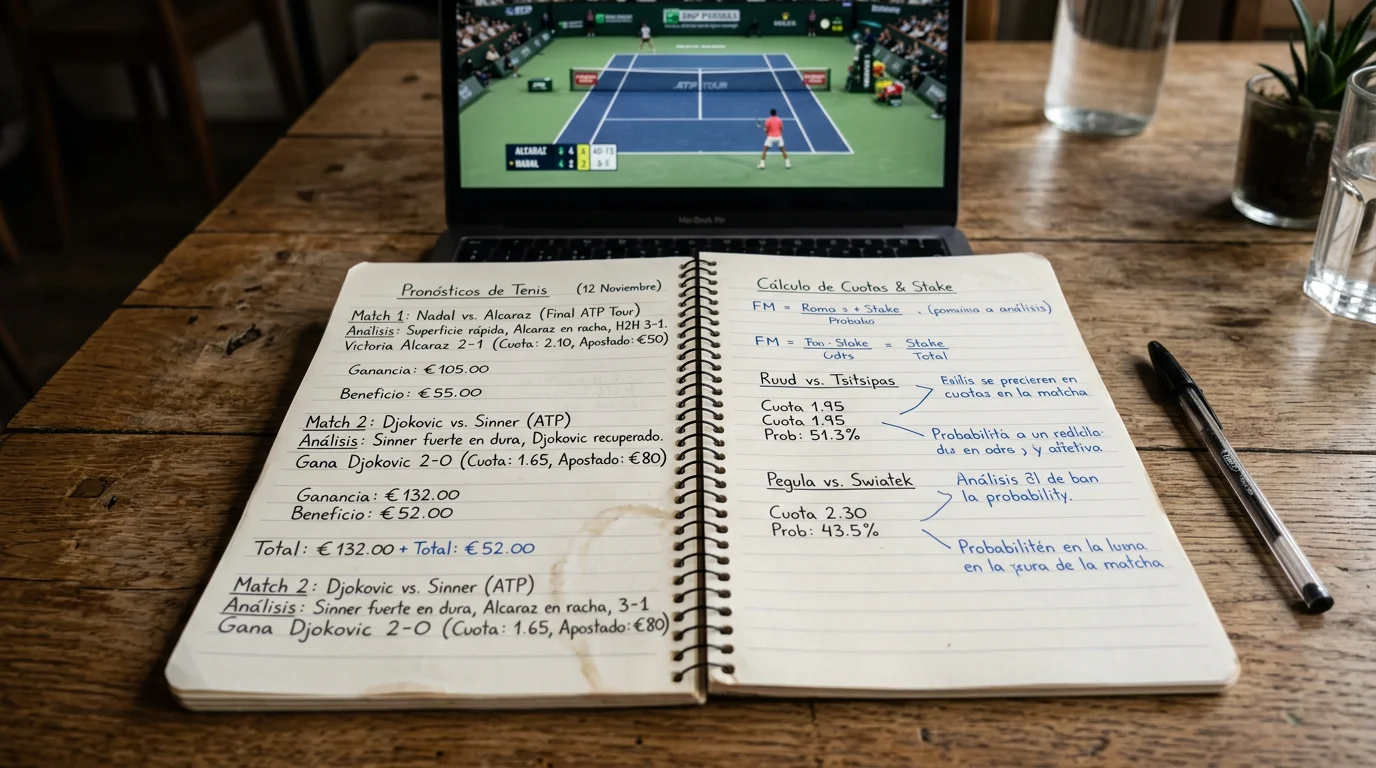 ALCARAZ 4
40-15
NADAL
ATP TOUR
Pronósticos de Tenis (12 Noviembre)
Match 1: Nadal vs. Alcaraz (Final ATP Tour)
Análisis: Superficie rápida, Alcaraz en racha, H2H 3-1.
Victoria Alcaraz 2-1 (Cuota: 2.10, Apostado: €50)
Ganancia: €105.00
Beneficio: €55.00
Match 2: Djokovic vs. Sinner (ATP)
Análisis: Sinner fuerte en dura, Djokovic recuperado.
Gana Djokovic 2-0 (Cuota: 1.65, Apostado: €80)
Ganancia: €132.00
Beneficio: €52.00
Total: €132.00 + Total: €52.00
Match 2: Djokovic vs. Sinner (ATP)
Análisis: Sinner fuerte en dura, Alcaraz en racha, 3-1
Gana Djokovic 2-0 (Cuota: 1.65, Apostado: €80)
Cálculo de Cuotas & Stake
FM = Roma + Stake (a análisis)
FM = Stake = Stake
Total
Ruud vs. Tsitsipas
se precieren en
cuotas en la matcha
Cuota 1.95
Cuota 1.95
Prob: 51.3%
a un
en y
Pegula vs. Swiatek
Análisis de ban
la probability.
Cuota 2.30
Prob: 43.5%
Probabilitén en la
en la de la matcha